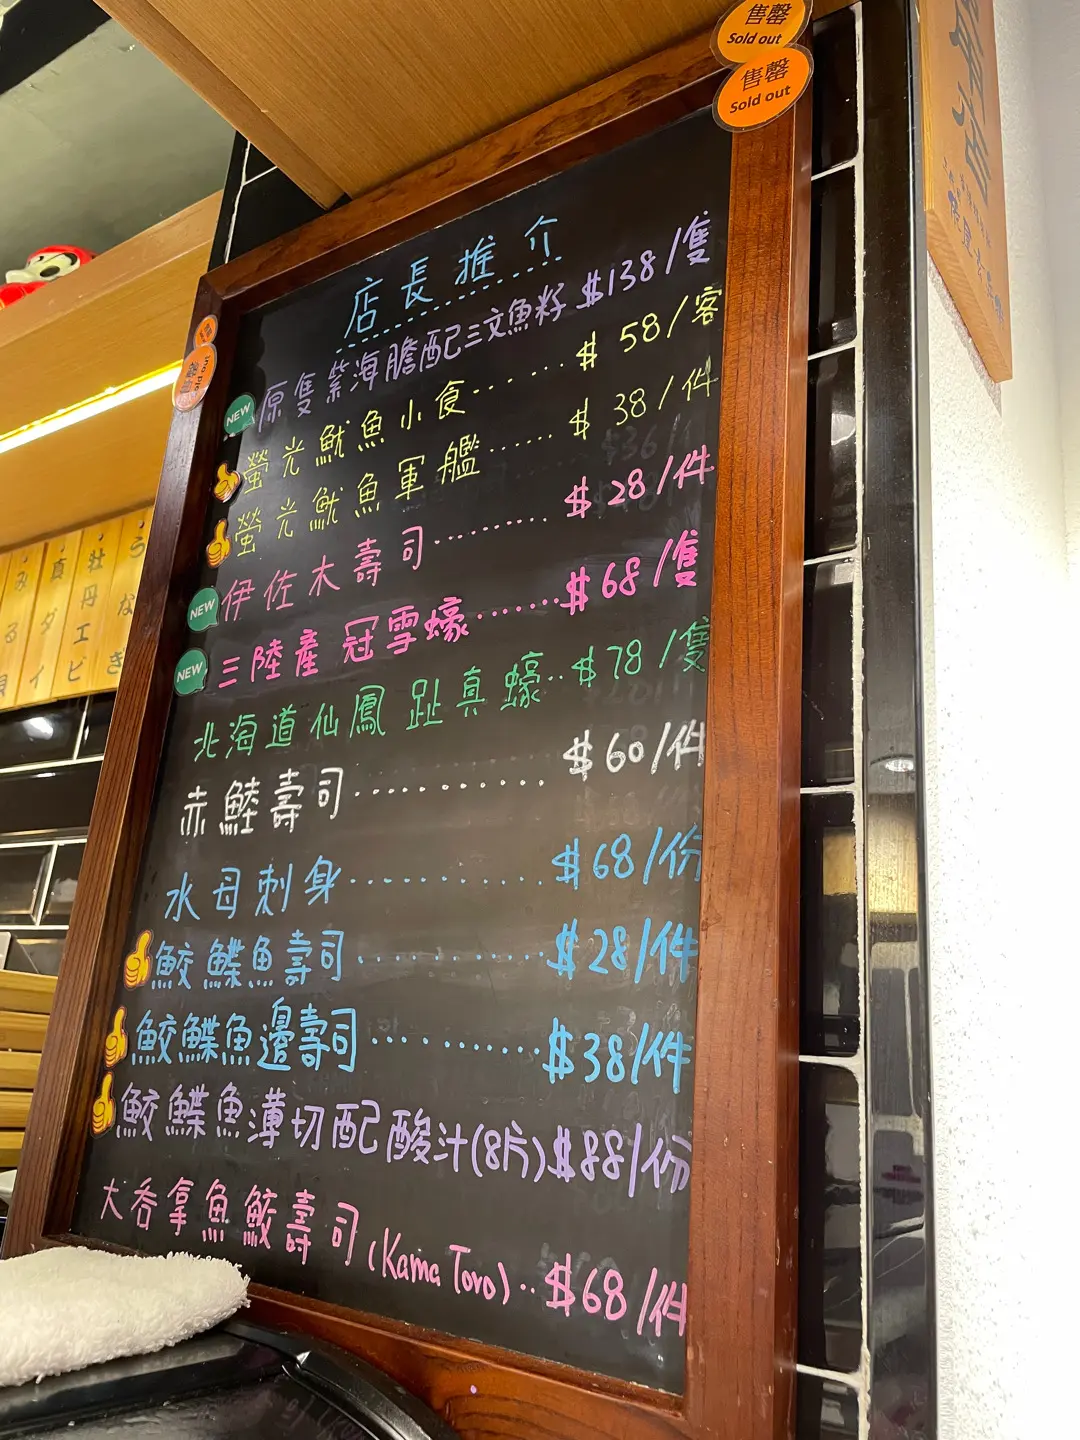 售罄
Sold out
售罄
Sold out
店長推介
NEW 原隻紫海膽配三文魚籽 $138/隻
螢光魷魚小食........ $58/客
螢光魷魚軍艦...... $38/件
NEW 伊佐木壽司......... $28/件
NEW 三陸產冠雪蠔.......$68/隻
北海道仙鳳趾真蠔..$78/隻
赤鯥壽司........... $60/件
水母刺身........... $68/份
鮫鰈魚壽司........... $28/件
鮫鰈魚邊壽司..........$38/件
鮫鰈魚薄切配酸汁(8片)$88/份
大吞拿魚鮫壽司(Kama Toro)..$68/件
うなぎ
牡丹エビ
真ダイ